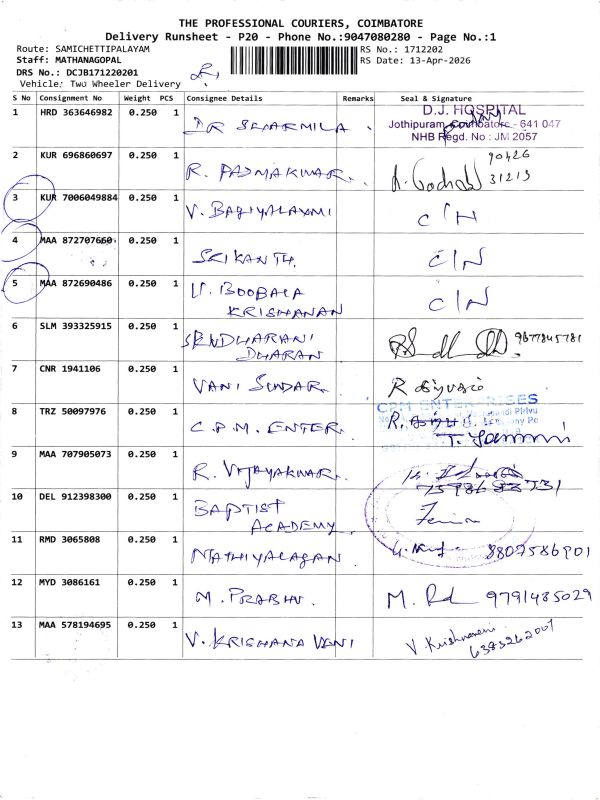 THE PROFESSIONAL COURIERS, COIMBATORE
Delivery Runsheet - P20 - Phone No.:9047080280 - Page No.:1
Route: SAMICHETTIPALAYAM
RS No.: 1712202
Staff: MATHANAGOPAL
RS Date: 13-Apr-2026
DRS No.: DCJB171220201
Vehicle: Two Wheeler Delivery
S No Consignment No Weight PCS Consignee Details Remarks Seal & Signature
1 HRD 363646982 0.250 1 DR SHARMILA D.J. HOSPITAL
Jothipuram, Coimbatore - 641 047
NHB Regd. No : JM 2057
2 KUR 696860697 0.250 1 R. PADMAKUMAR. 90426
31213
3 KUR 7006049884 0.250 1 V. BAGIYALAXMI C/N
4 MAA 872707660 0.250 1 SRIKANTH. C/N
5 MAA 872690486 0.250 1 U. BOOBALA
KRISHANAN C/N
6 SLM 393325915 0.250 1 DHARAN 9677845781
7 CNR 1941106 0.250 1 VANI SUNDAR.
8 TRZ 50097976 0.250 1 C.P.M. ENTER. CPM ENTERPRISES
9 MAA 707905073 0.250 1 R. VIJAYAKUMAR.
10 DEL 912398300 0.250 1 BAPTIST
ACADEMY
11 RMD 3065808 0.250 1 MATHIYALAGAN 8807586901
12 MYD 3086161 0.250 1 M. PRABHU. M. 9791485029
13 MAA 578194695 0.250 1 V. KRISHANA VENI V. Krishnaveni
6383262007